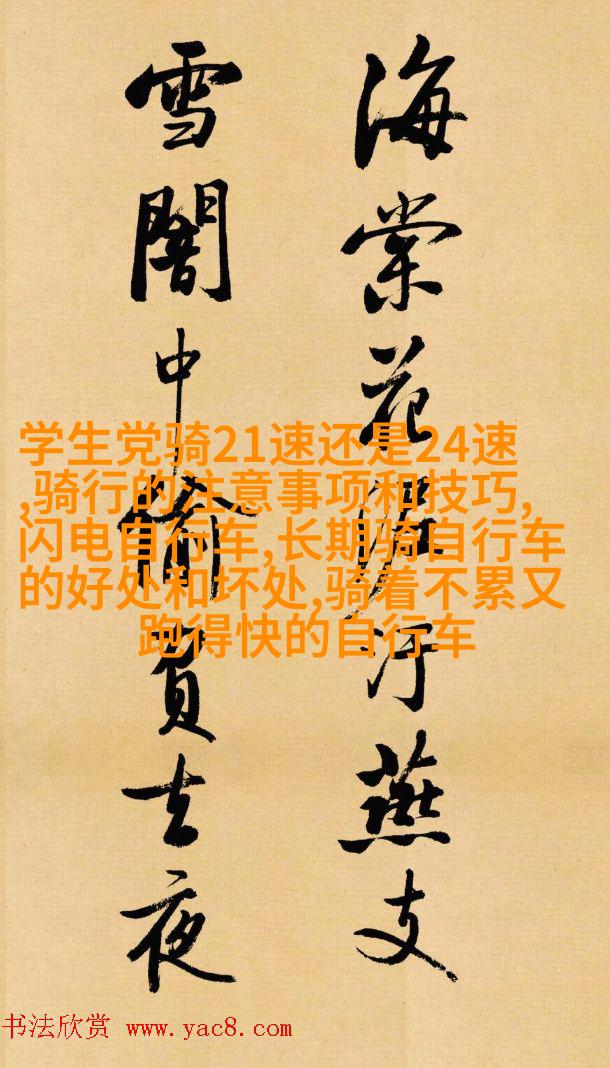 海棠花泥汙燕支
雪闇中偷負去夜
学生党骑21速还是24速
,骑行的注意事项和技巧,
闪电自行车,长期骑自行车
的好处和坏处,骑着不累又
跑得快的自行车
书法欣赏 www.yac8.com